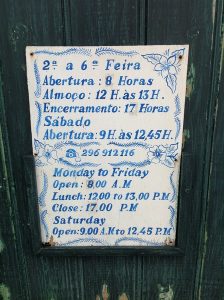 2ª a 6ª Feira
Abertura: 8 Horas
Almoço: 12 H. às 13 H.
Encerramento: 17 Horas
Sábado
Abertura: 9 H. às 12,45 H.
☎ 296 912 116
Monday to Friday
Open: 8,00 A.M
Lunch: 12,00 to 13,00 P.M
Close: 17,00 P.M
Saturday
Open: 9,00 A.M to 12,45 P.M